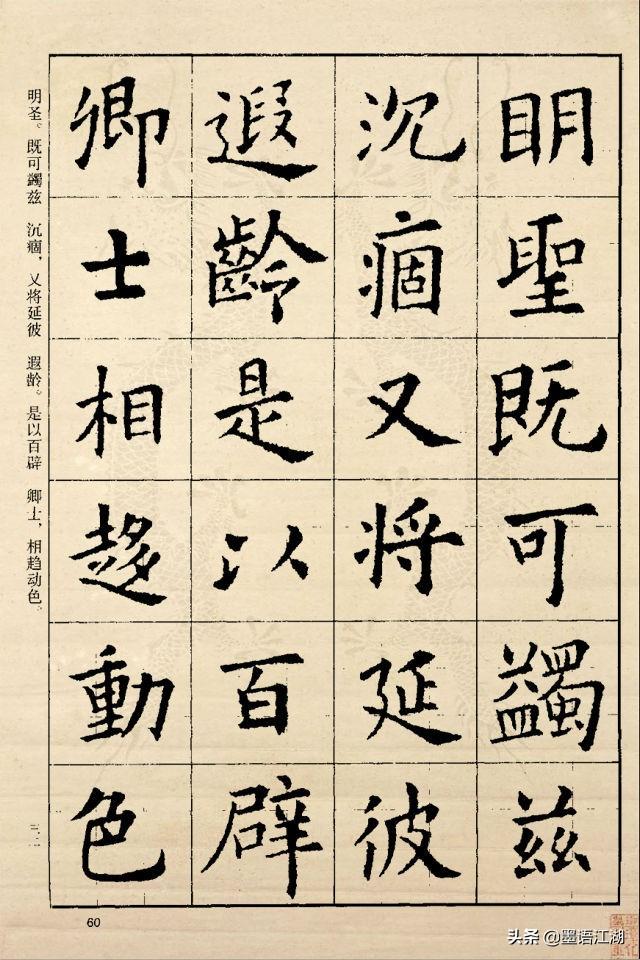 明聖既可蠲兹
沉痼又将延彼
遐齡是以百辟
卿士相趍動色
明圣。既可蠲兹 沉痼，又将延彼 遐龄。是以百辟 卿士，相趋动色。
三二
60
头条 @墨语江湖